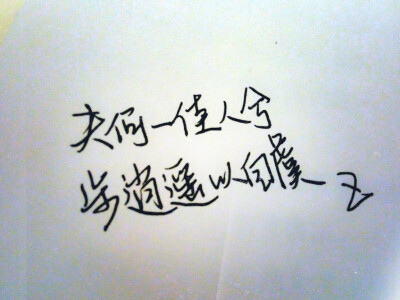 夫何一佳人兮
步逍遥以自虞